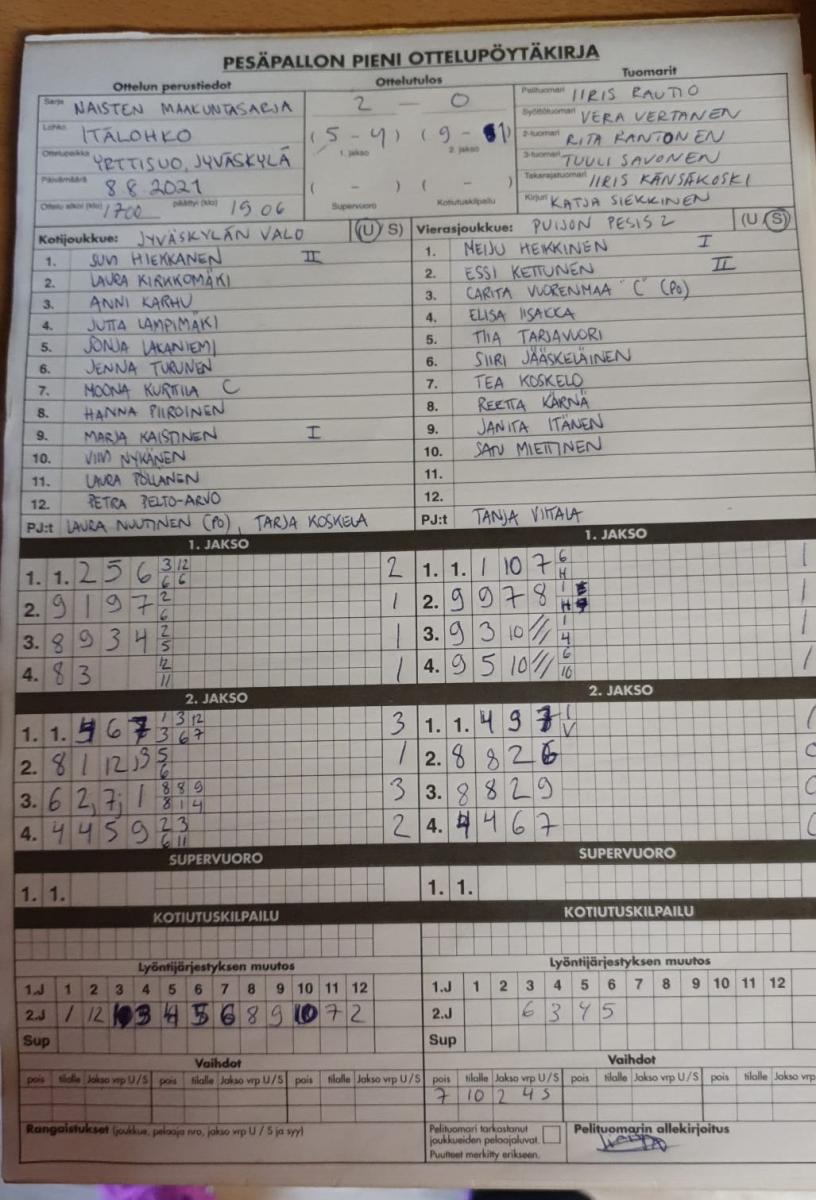 PESÄPALLON PIENI OTTELUPÖYTÄKIRJA
Ottelun perustiedot Ottelutulos Tuomarit
Sarja NAISTEN MAAKUNTASARJA
Lohko ITÄLOHKO
Ottelupaikka YRTTISUO, JYVÄSKYLÄ
Päivämäärä 8 8 2021
Ottelu alkoi (klo) 1700 päättyi (klo) 19 06
2 – 0
(5 - 4) (9 - 1)
1. jakso 2. jakso
( - ) ( - )
Supervuoro Kotiutuskilpailu
Pelituomari IIRIS RAUTIO
Syöttötuomari VERA VERTANEN
2-tuomari RITA RANTONEN
3-tuomari TUULI SAVONEN
Takarajatuomari IIRIS KÄNSÄKOSKI
Kirjuri KATJA SIEKKINEN
Kotijoukkue: JYVÄSKYLÄN VALO (U S)
1. SUVI HIEKKANEN II
2. LAURA KIRKKOMÄKI
3. ANNI KARHU
4. JUTTA LAMPIMÄKI
5. SONJA LAKANIEMI
6. JENNA TURUNEN
7. MOONA KURTTILA C
8. HANNA PIIROINEN
9. MARJA KAISTINEN I
10. VIIVI NYKÄNEN
11. LAURA PÖLLÄNEN
12. PETRA PELTO-ARVO
PJ:t LAURA NUUTINEN (PO), TARJA KOSKELA
Vierasjoukkue: PUIJON PESIS 2 (U S)
1. MEIJU HEIKKINEN I
2. ESSI KETTUNEN II
3. CARITA VUORENMAA "C" (PO)
4. ELISA IISAKKA
5. TIIA TARJAVUORI
6. SIIRI JÄÄSKELÄINEN
7. TEA KOSKELO
8. REETTA KÄRNÄ
9. JANITA ITÄNEN
10. SATU MIETTINEN
11.
12.
PJ:t TANJA VIITALA
1. JAKSO
1. 1. 2 5 6 3 12 2
6 6
2. 9 1 9 7 2 1
6
3. 8 9 3 4 2 1
5
4. 8 3 12 1
11
1. JAKSO
1. 1. 1 10 7 6 1
H
2. 9 9 7 8 1 1
H
3. 9 3 10 // 1 1
4
4. 9 5 10 // 6 1
10
2. JAKSO
1. 1. 4 6 7 1 3 12 3
3 6 7
2. 8 1 12, 3 5 1
6
3. 6 2, 7, 1 8 8 9 3
8 1 4
4. 4 4 5 9 2 3 2
6 11
2. JAKSO
1. 1. 4 9 7 1 1
V
2. 8 8 2 6 0
3. 8 8 2 9 0
4. 4 4 6 7 0
SUPERVUORO SUPERVUORO
1. 1. 1. 1.
KOTIUTUSKILPAILU KOTIUTUSKILPAILU
Lyöntijärjestyksen muutos
1.J 1 2 3 4 5 6 7 8 9 10 11 12
2.J 1 12 3 4 5 6 8 9 10 7 2
Sup
Lyöntijärjestyksen muutos
1.J 1 2 3 4 5 6 7 8 9 10 11 12
2.J 6 3 4 5
Sup
Vaihdot
pois tilalle Jakso vrp U/S pois tilalle Jakso vrp U/S pois tilalle Jakso vrp U/S
Vaihdot
pois tilalle Jakso vrp U/S pois tilalle Jakso vrp U/S pois tilalle Jakso vrp
7 10 2 4 S
Rangaistukset (joukkue, pelaaja nro, jakso vrp U / S ja syy)
Pelituomari tarkastanut
joukkueiden pelaajaluvat.
Puutteet merkitty erikseen.
Pelituomarin allekirjoitus